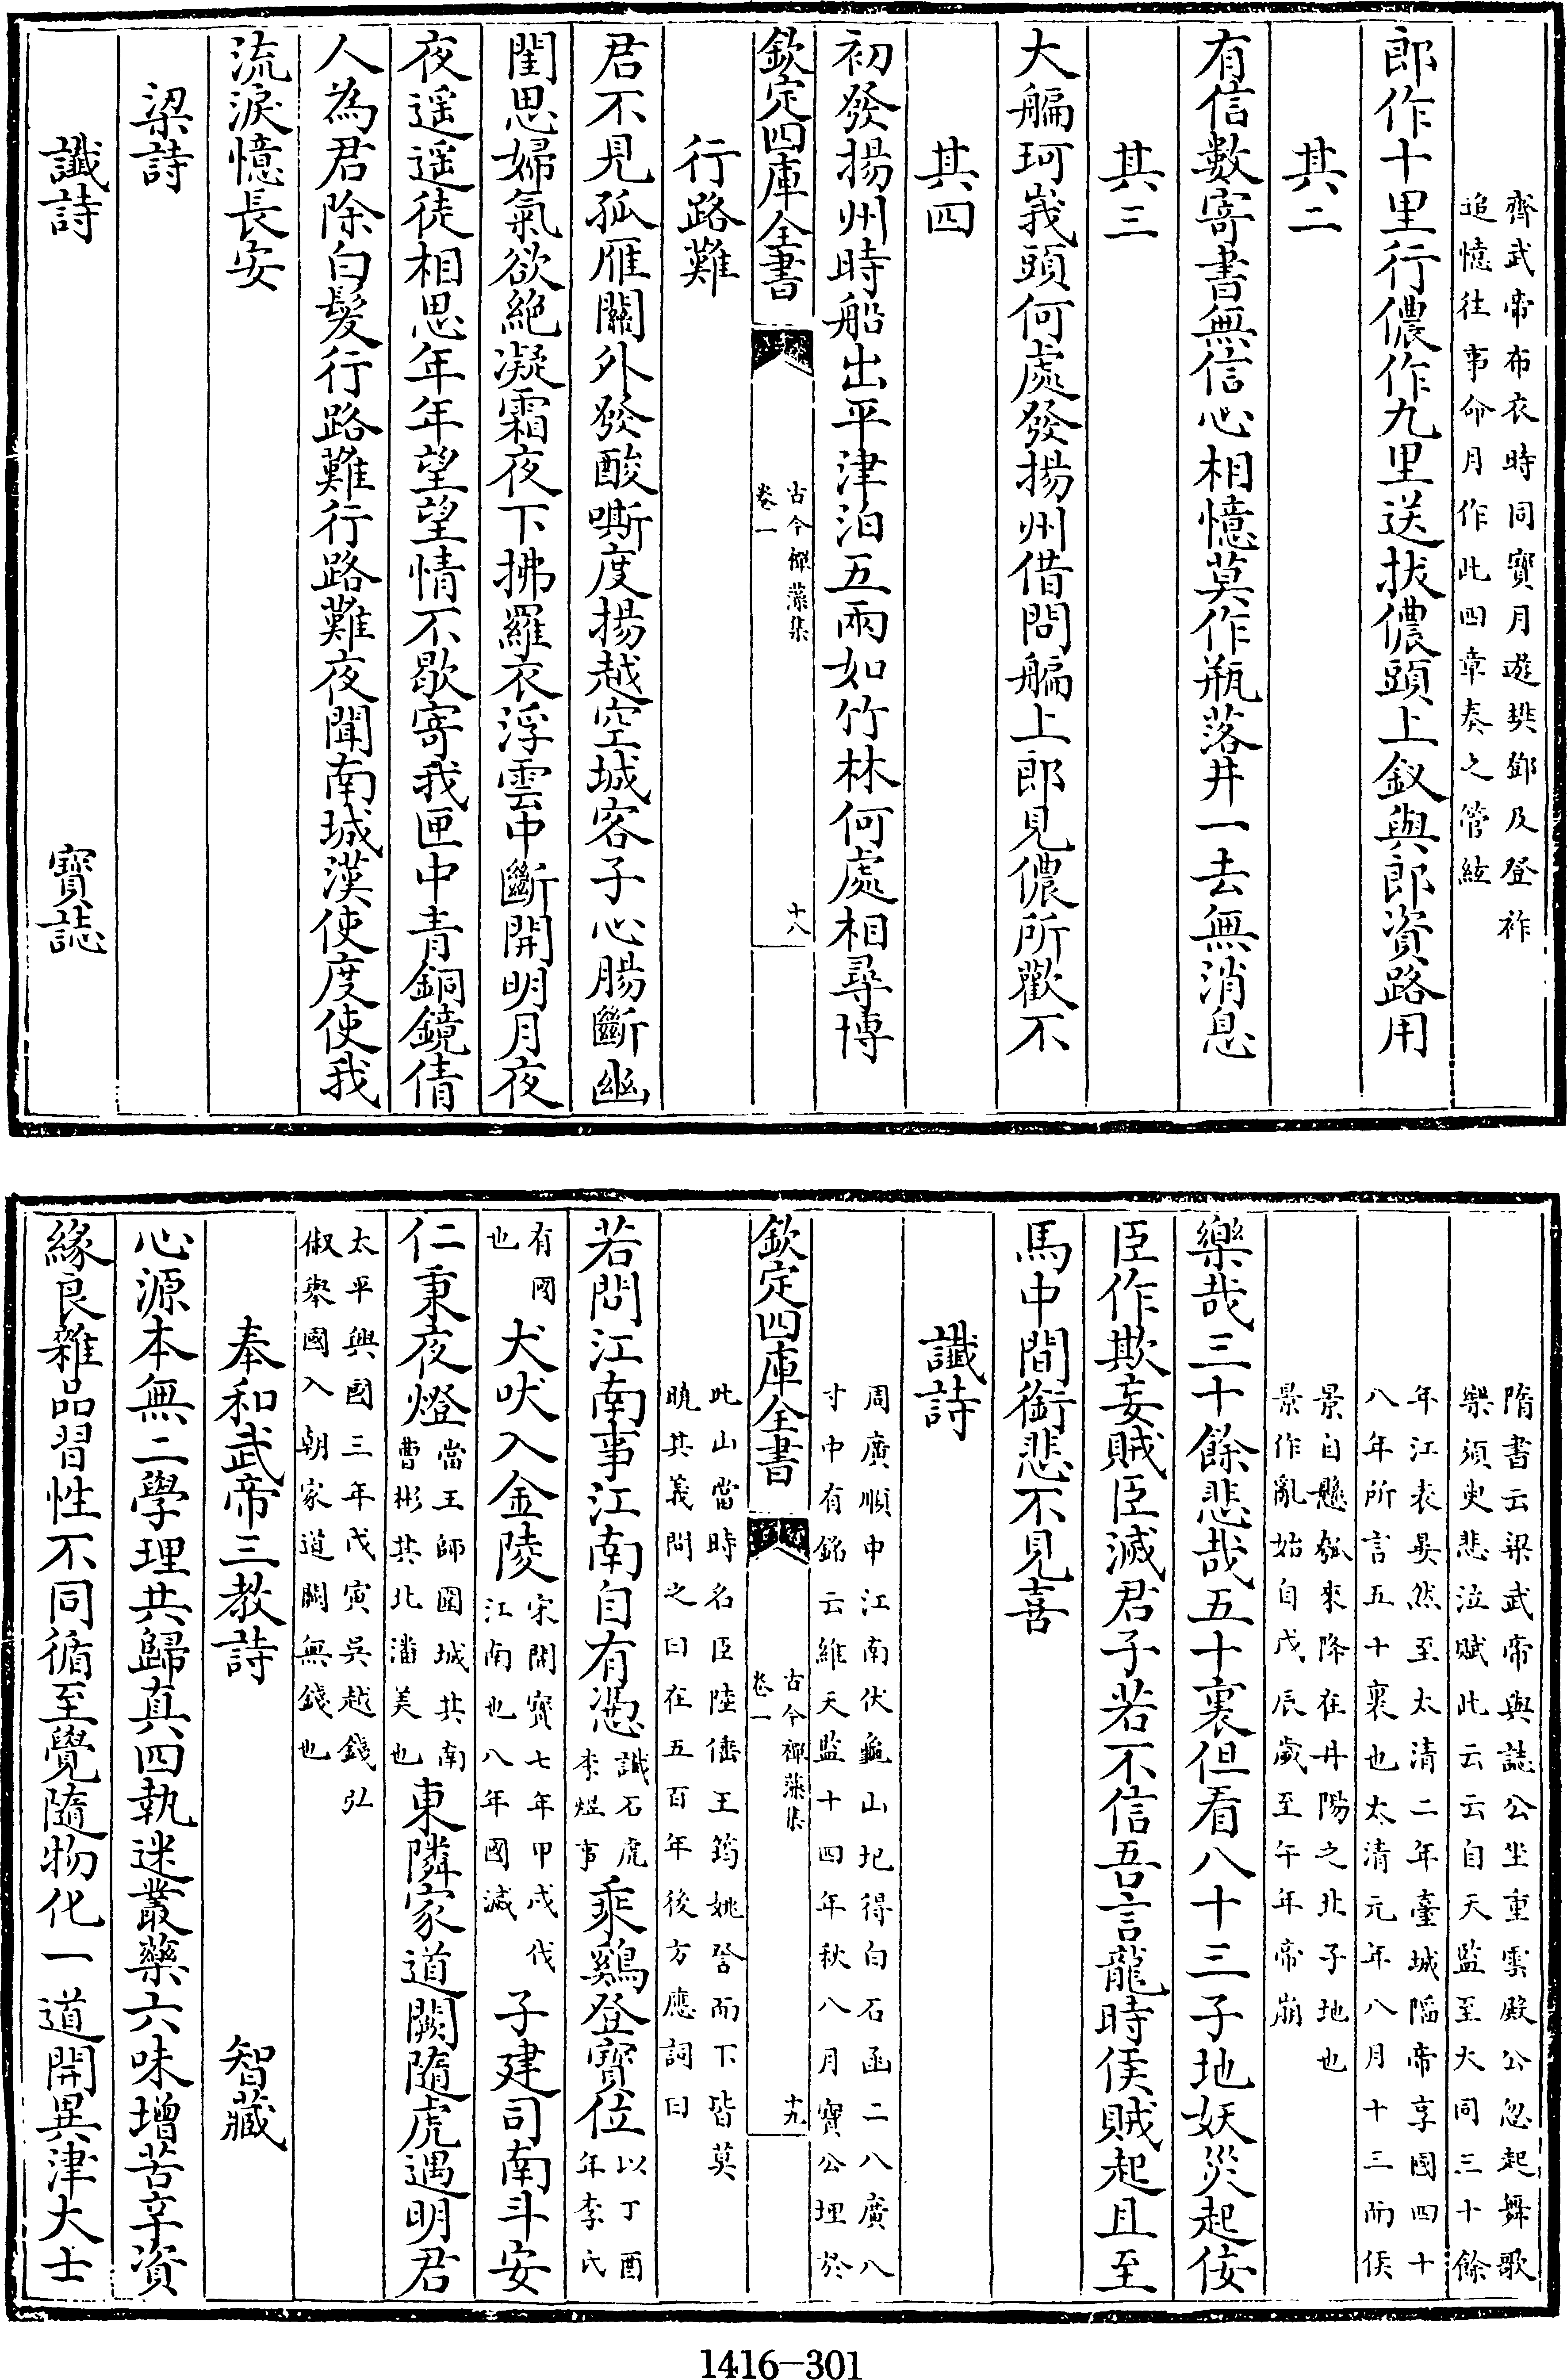 齊武帝布衣時同寶月遊樊鄧及登祚
追憶往事命月作此四章奏之管絃
郎作十里行儂作九里送拔儂頭上釵與郎資路用
其二
有信數寄書無信心相憶莫作瓶落井一去無消息
其三
大艑珂峩頭何處發揚州借問艑上郎見儂所歡不
其四
初發揚州時船出平津泊五兩如竹林何處相尋博
欽定四庫全書
古今禪藻集
卷一
十八
行路難
君不見孤雁關外發酸嘶度揚越空城客子心腸斷幽
閨思婦氣欲絶凝霜夜下拂羅衣浮雲中斷開明月夜
夜遥遥徒相思年年望望情不歇寄我匣中青銅鏡倩
人為君除白髮行路難行路難夜聞南城漢使度使我
流淚憶長安
梁詩
讖詩 寶誌
隋書云梁武帝與誌公坐重雲殿公忽起舞歌
樂須臾悲泣賦此云云自天監至大同三十餘
年江表晏然至太清二年臺城陷帝享國四十
八年所言五十裏也太清元年八月十三而侯
景自懸瓠來降在丹陽之北子地也
景作亂始自戊辰歲至午年帝崩
樂哉三十餘悲哉五十裏但看八十三子地妖災起佞
臣作欺妄賊臣滅君子若不信吾言龍時侯賊起且至
馬中間銜悲不見喜
讖詩
周廣順中江南伏龜山圮得白石函二八廣八
寸中有銘云維天監十四年秋八月寶公埋於
欽定四庫全書
古今禪藻集
卷一
十九
此山當時名臣陸倕王筠姚詧而下皆莫
曉其義問之曰在五百年後方應詞曰
若問江南事江南自有憑讖石虎李煜事乘鷄登寶位以丁酉年李氏
有國也犬吠入金陵宋開寶七年甲戌伐江南也八年國滅子建司南斗安
仁秉夜燈當王師圍城其南曹彬其北潘美也東隣家道闕隨虎遇明君
太平興國三年戊寅吳越錢弘
俶舉國入朝家道闕無錢也
奉和武帝三教詩 智藏
心源本無二學理共歸真四執迷叢藥六味增苦辛資
緣良雜品習性不同循至覺隨物化一道開異津大士
1416-301